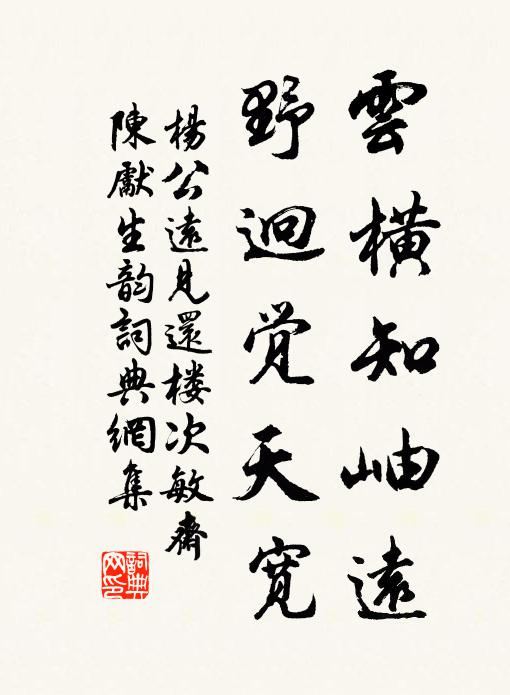 雲横知岫遠
野迴覚天寛
楊公遠見還楼次敏齋
陳獻生韵詞典網集
詞典网印